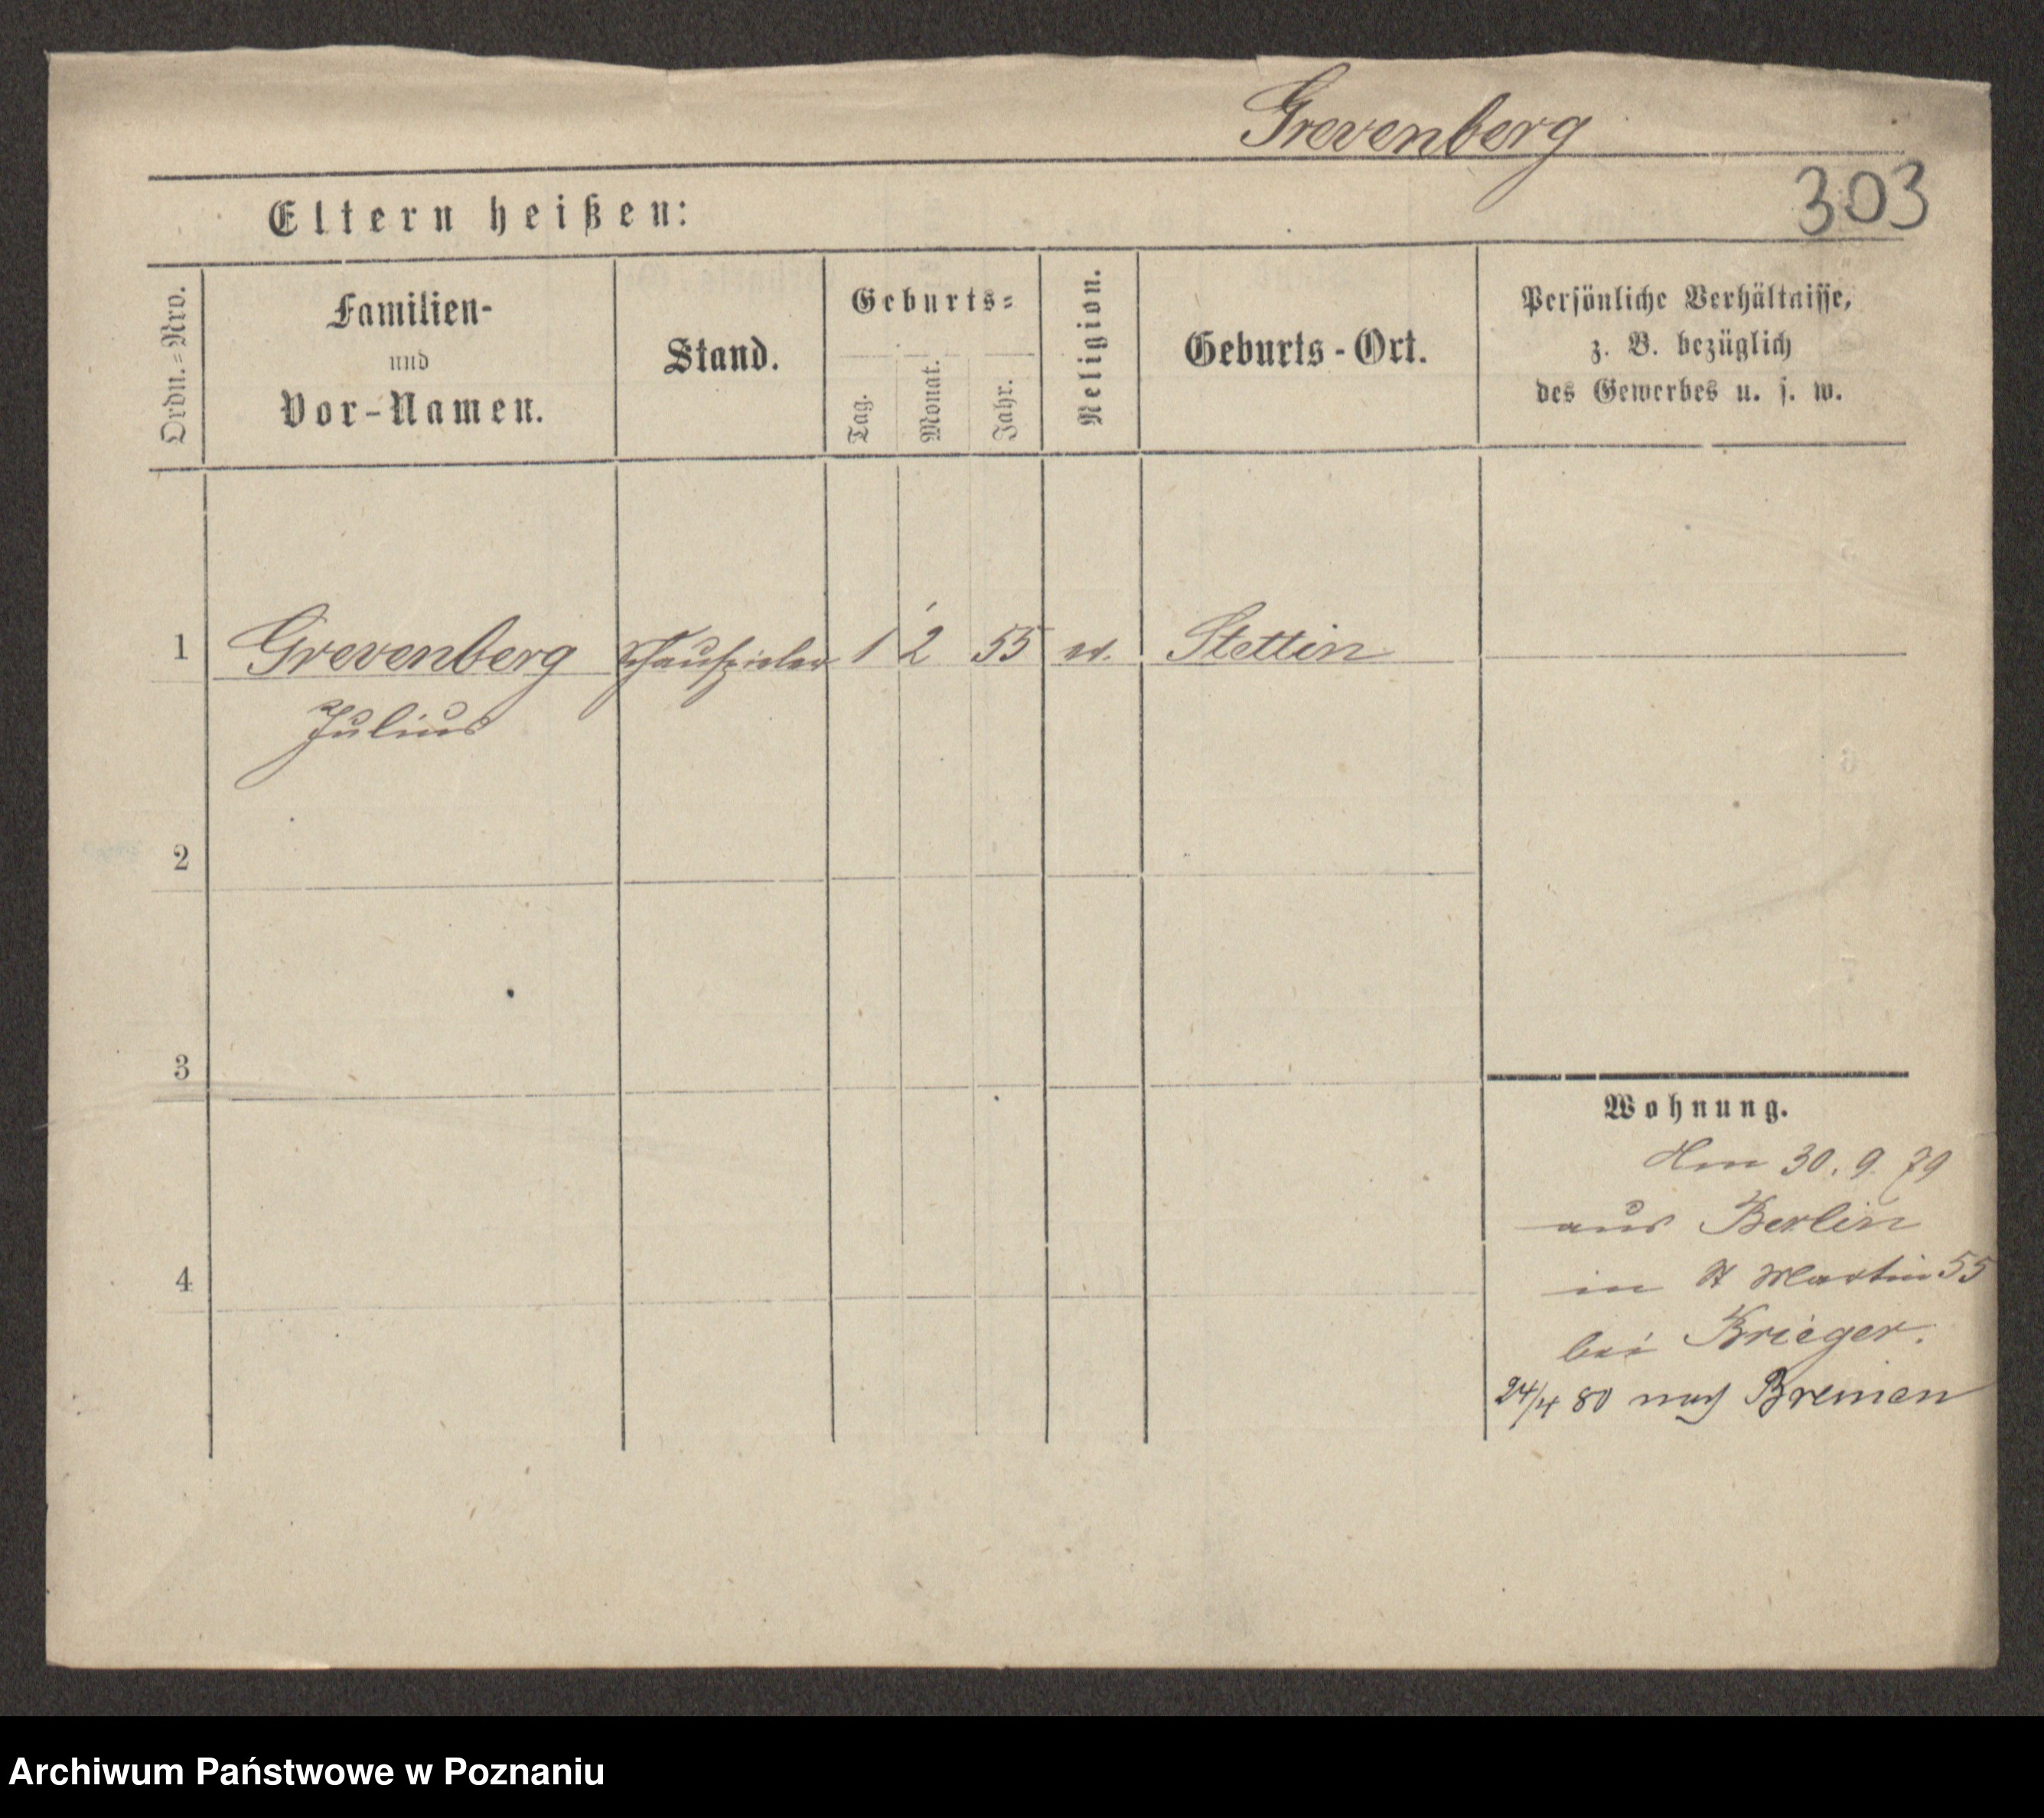 Grevenberg
303
Eltern heißen:
Ordn.=Nro.
Familien-
und
Vor-Namen.
Stand.
Geburts=
Tag.
Monat.
Jahr.
Religion.
Geburts-Ort.
Persönliche Verhältnisse,
z. B. bezüglich
des Gewerbes u. s. w.
1 Grevenberg Schauspieler 1 2 55 ev. Stettin
Julius
2
3
4
Wohnung.
Am 30. 9. 79
aus Berlin
in St Martin 55
bei Krieger.
24/4 80 nach Bremen
Archiwum Państwowe w Poznaniu